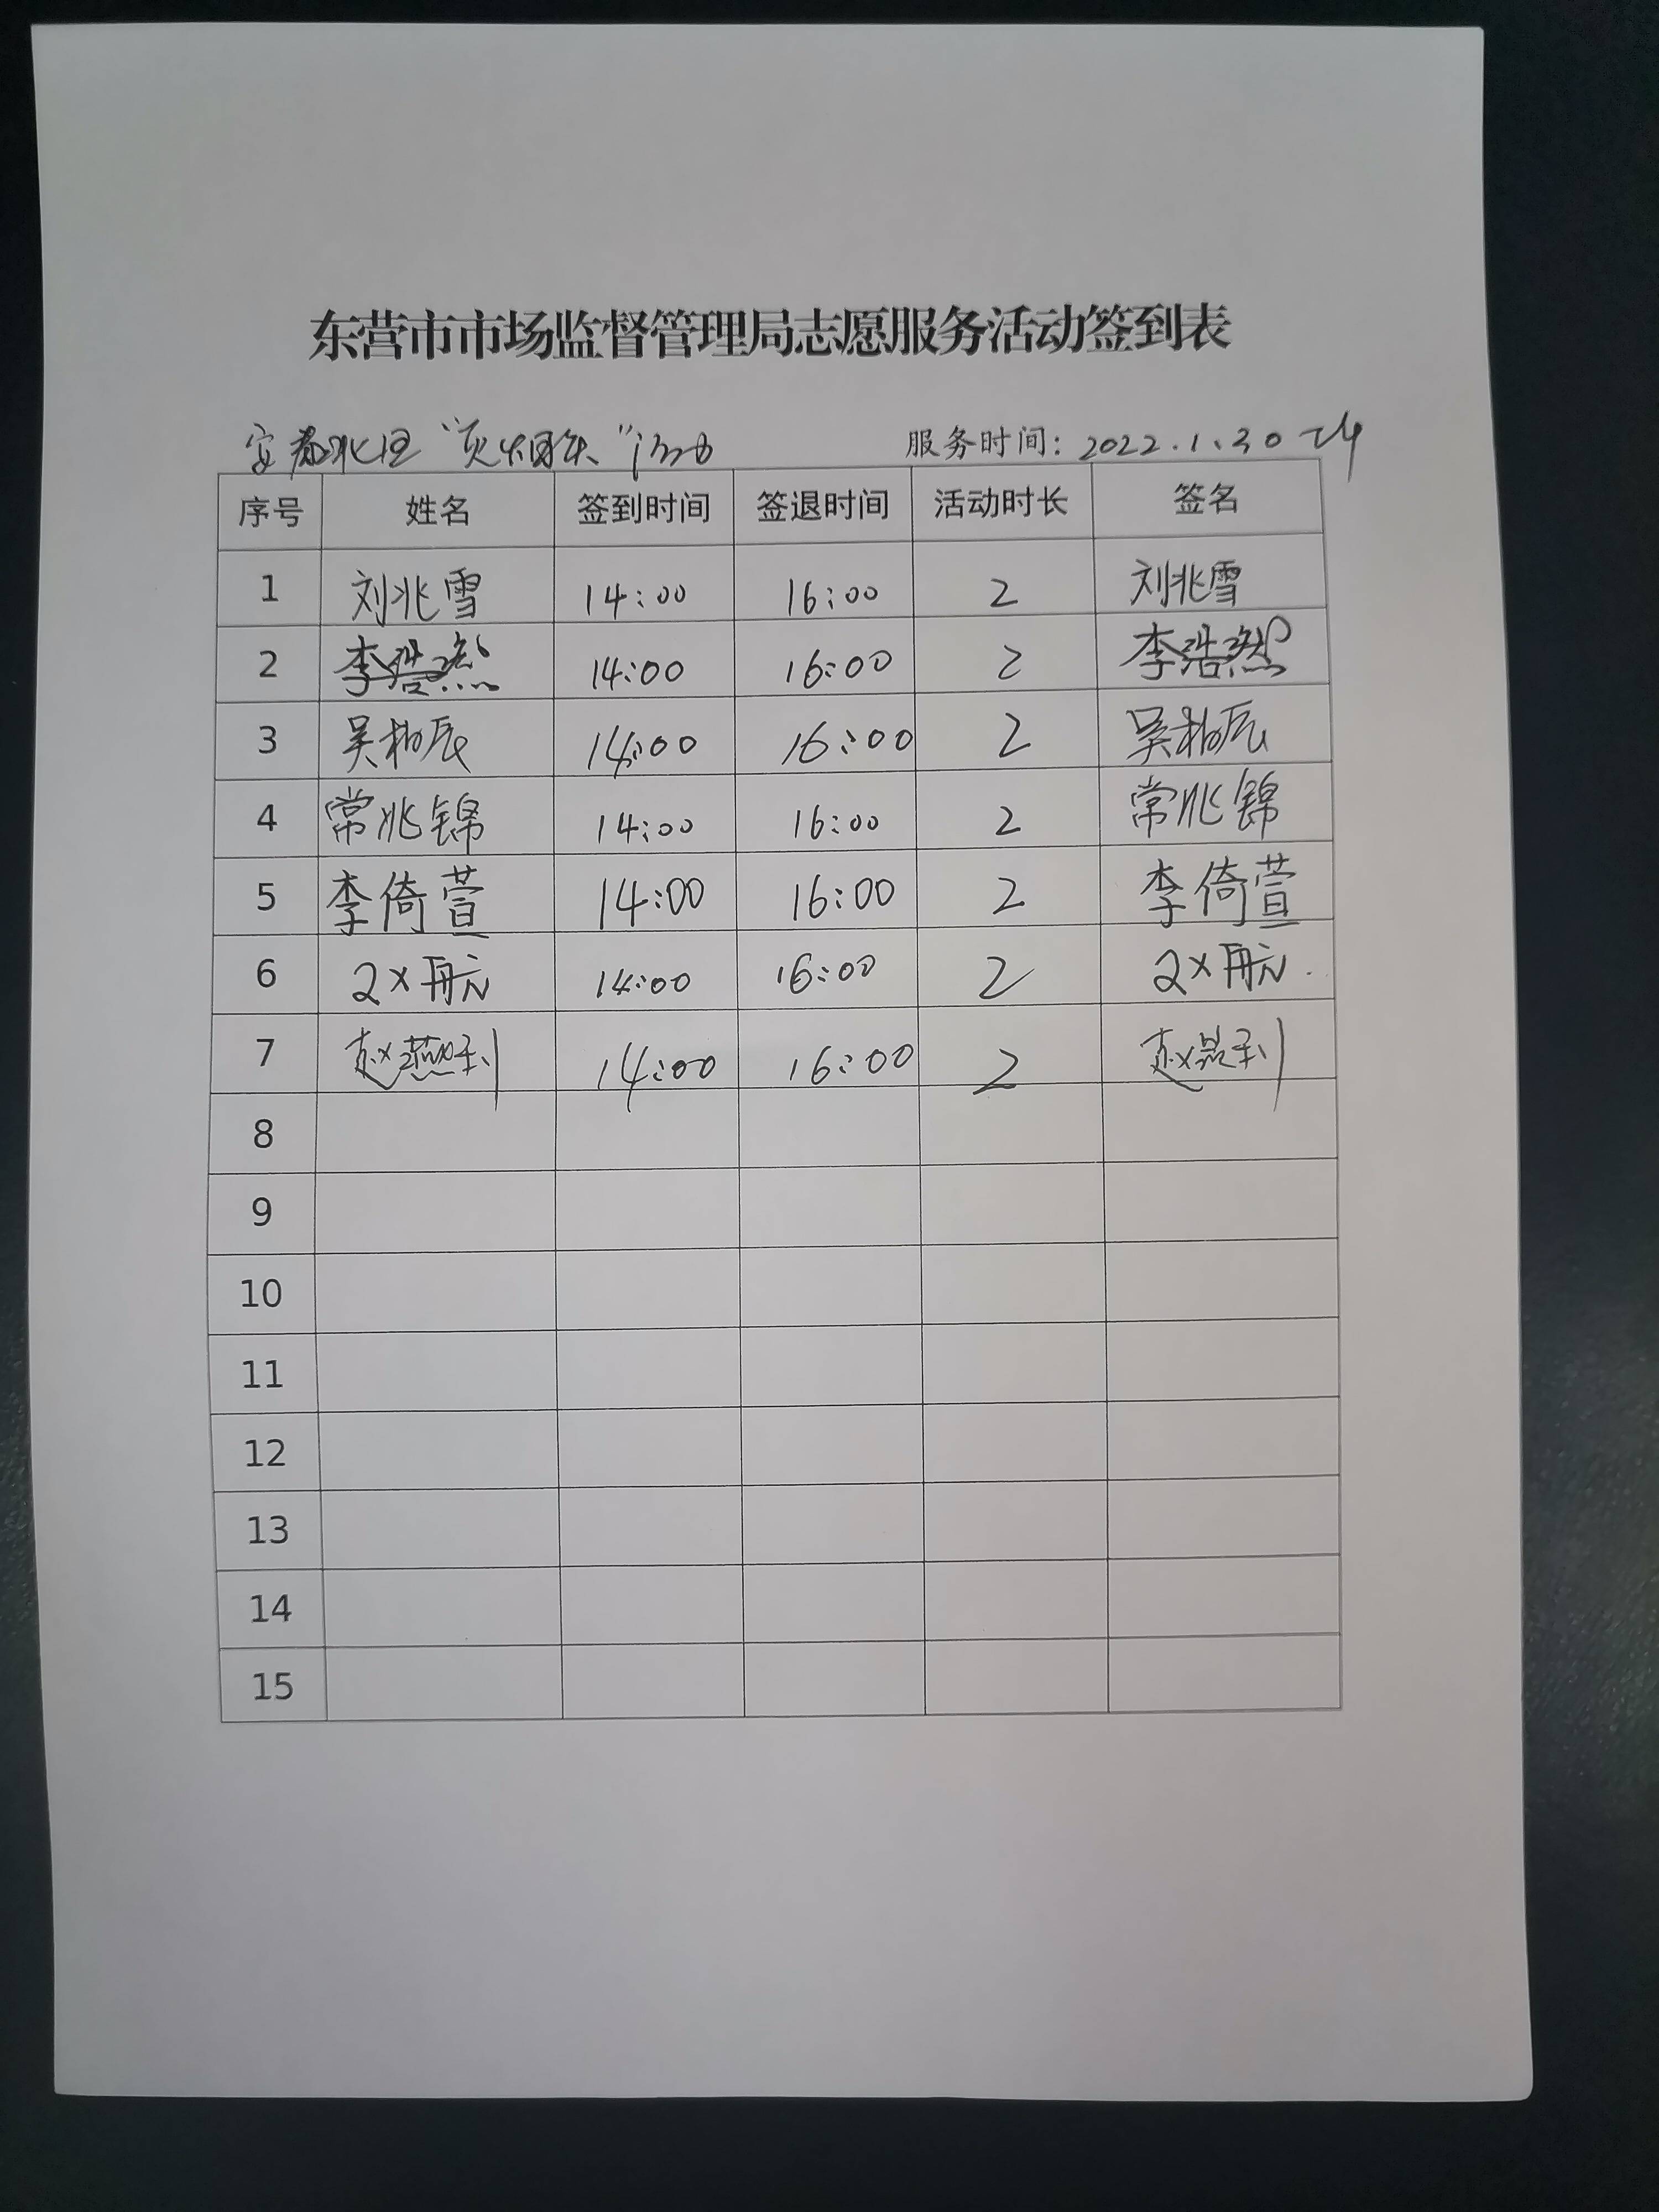 东营市市场监督管理局志愿服务活动签到表
安都北里“灭烟头”活动 服务时间：2022.1.30下午
序号 姓名 签到时间 签退时间 活动时长 签名
1 刘兆雪 14:00 16:00 2 刘兆雪
2 李浩然 14:00 16:00 2 李浩然
3 吴柏辰 14:00 16:00 2 吴柏辰
4 常兆锦 14:00 16:00 2 常兆锦
5 李倚萱 14:00 16:00 2 李倚萱
6 14:00 16:00 2
7 赵 14:00 16:00 2 赵
8
9
10
11
12
13
14
15